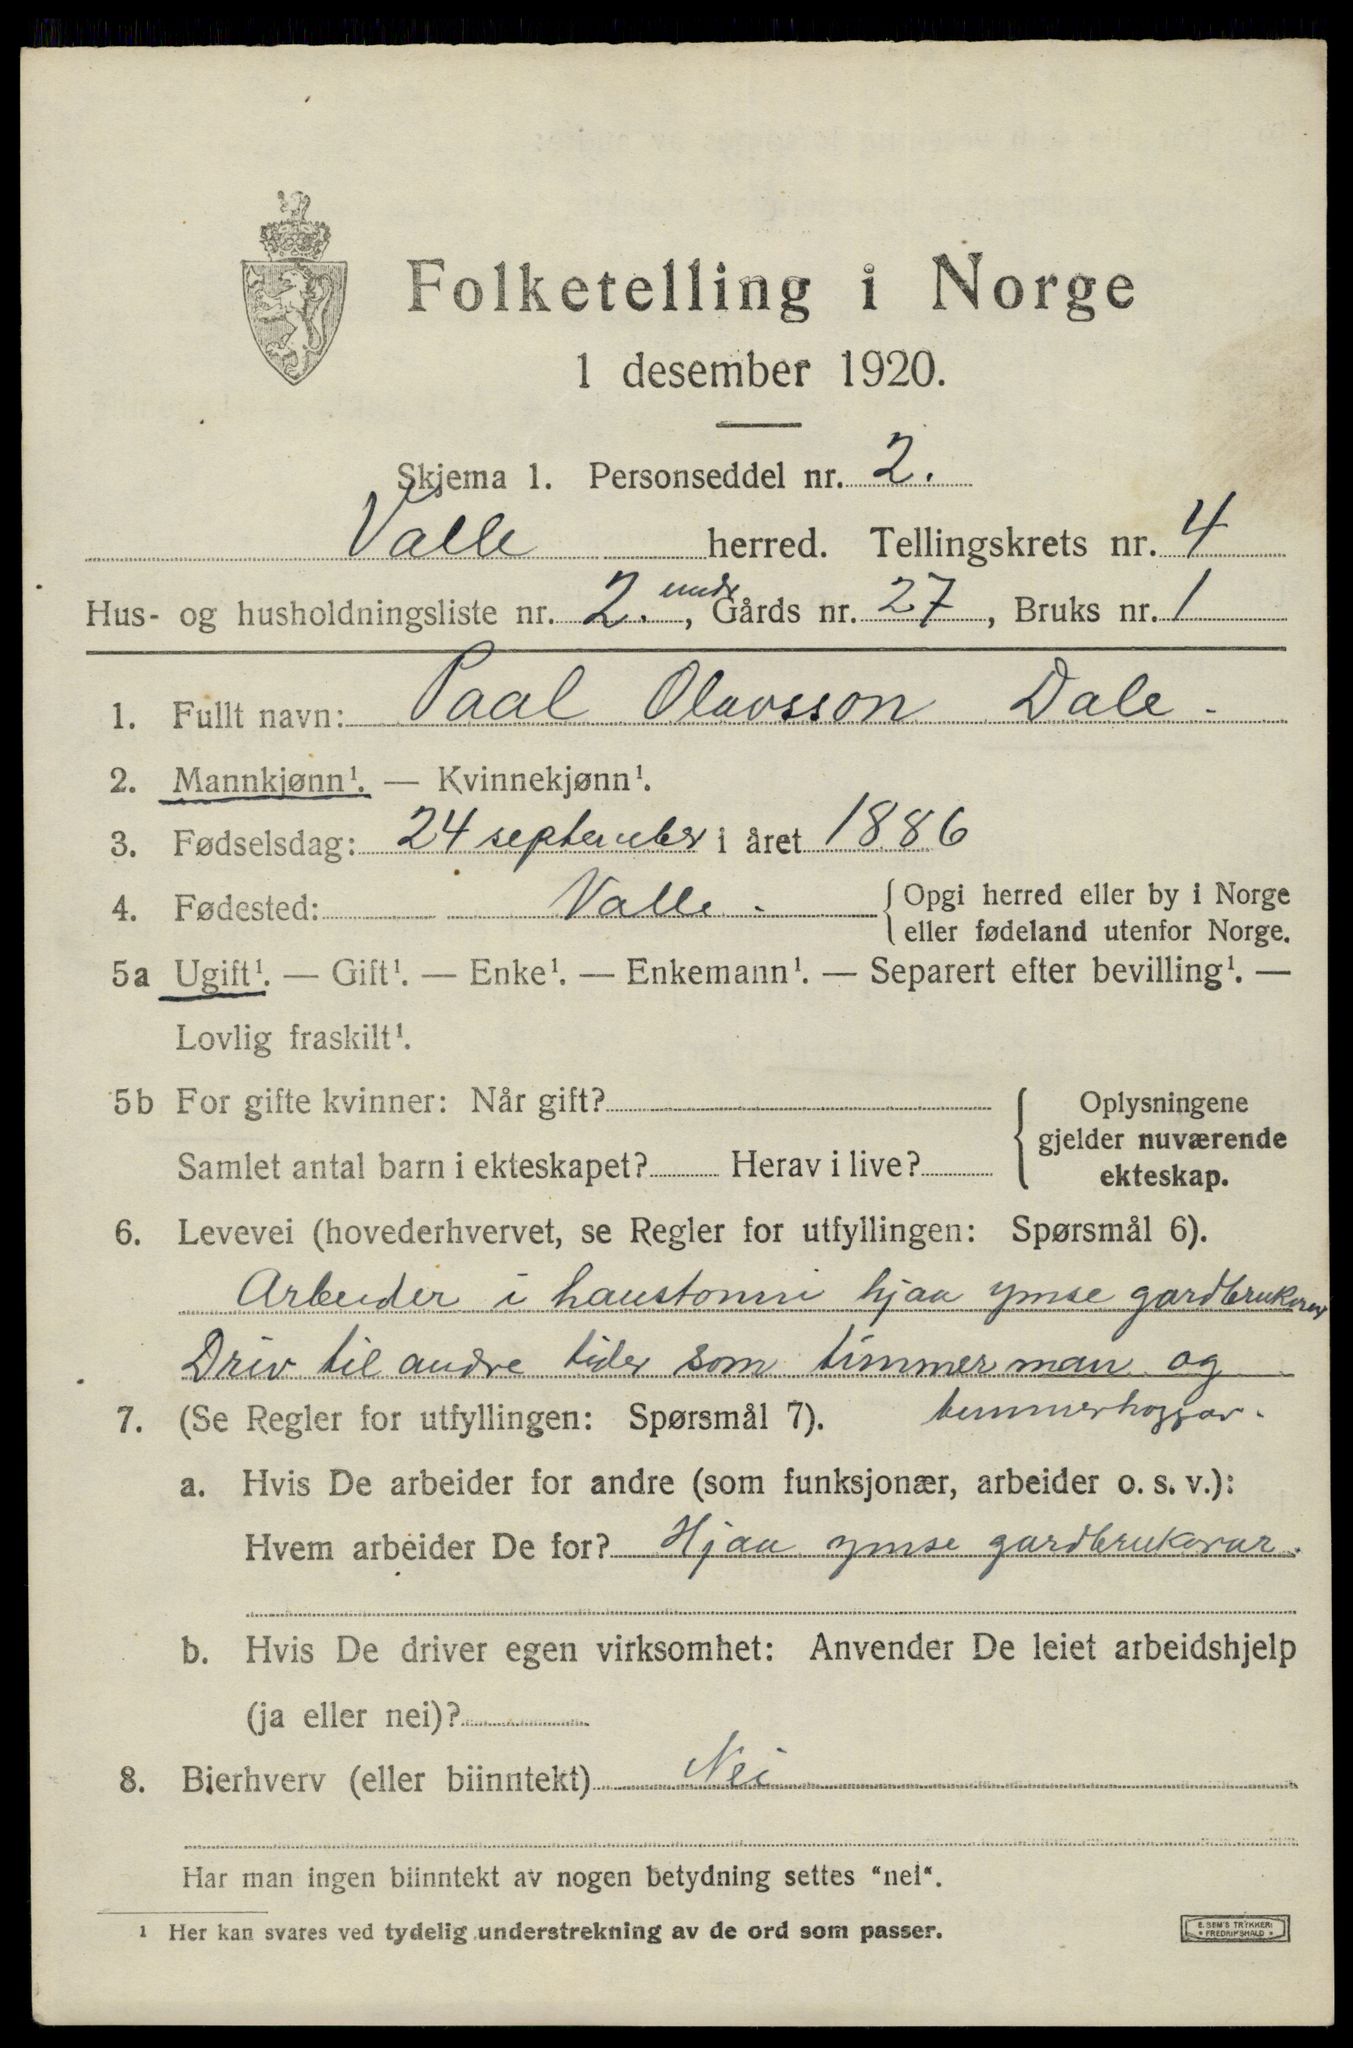 Folketelling i Norge
1 desember 1920.
Skjema 1. Personseddel nr. 2.
Valle herred. Tellingskrets nr. 4
Hus- og husholdningsliste nr. 2. undr, Gårds nr. 27, Bruks nr. 1
1. Fullt navn: Paal Olavsson Dale.
2. Mannkjønn¹. — Kvinnekjønn¹.
3. Fødselsdag: 24 september i året 1886
4. Fødested: Valle. { Opgi herred eller by i Norge
eller fødeland utenfor Norge.
5a Ugift¹. — Gift¹. — Enke¹. — Enkemann¹. — Separert efter bevilling¹. —
Lovlig fraskilt¹.
5b For gifte kvinner: Når gift?
Samlet antal barn i ekteskapet? Herav i live?
Oplysningene
gjelder nuværende
ekteskap.
6. Levevei (hovederhvervet, se Regler for utfyllingen: Spørsmål 6).
Arbeider i haustonni hjaa ymse gardbrukarar
Driv til andre tider som timmerman og
timmerhoggar.
7. (Se Regler for utfyllingen: Spørsmål 7).
a. Hvis De arbeider for andre (som funksjonær, arbeider o. s. v.):
Hvem arbeider De for? Hjaa ymse gardbrukarar.
b. Hvis De driver egen virksomhet: Anvender De leiet arbeidshjelp
(ja eller nei)?
8. Bierhverv (eller biinntekt) Nei
Har man ingen biinntekt av nogen betydning settes "nei".
¹ Her kan svares ved tydelig understrekning av de ord som passer.
E. SEM'S TRYKKERI
* FREDRIKSHALD *